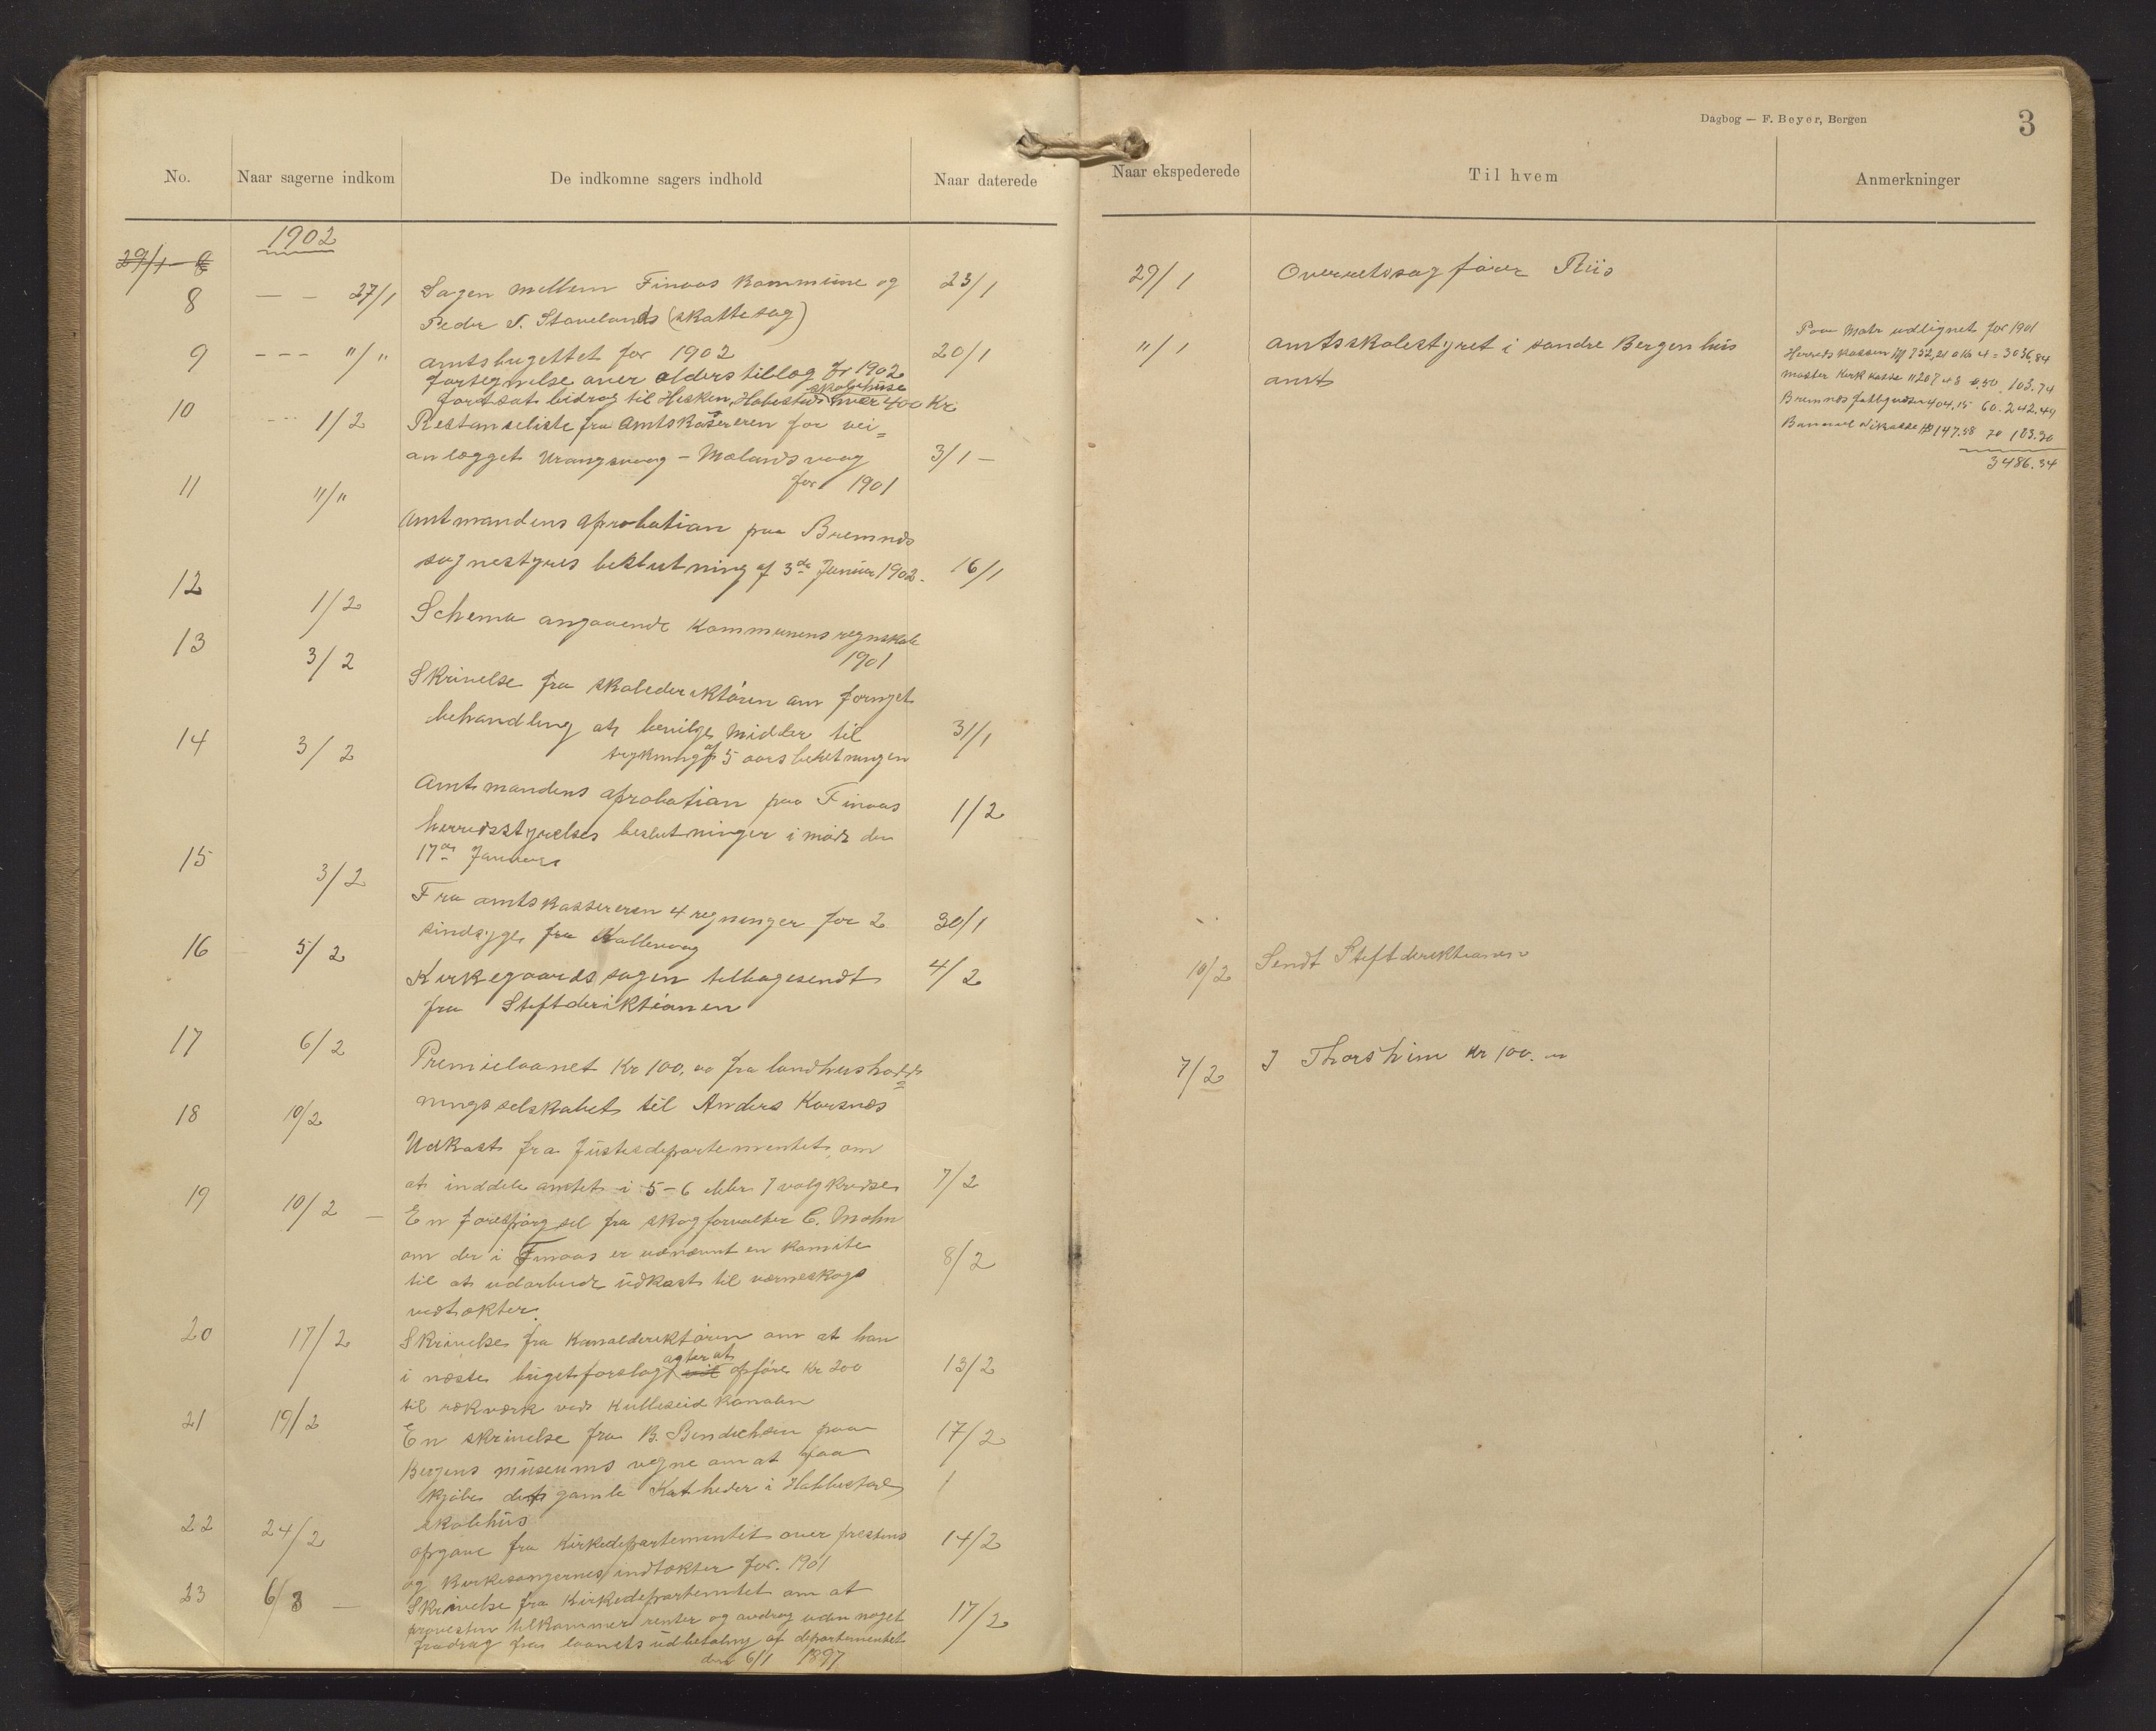 Dagbog — F. Beyer, Bergen
3
No.
Naar sagerne indkom
De indkomne sagers indhold
Naar daterede
Naar ekspederede
Til hvem
Anmerkninger
1902
29/1 8
8 — — 27/1 Sagen mellem Finaas Kommune og 23/1 29/1 Overretssagfører Riis
Peder N. Stavelands (skattesag)
9 --- "/" Amtsbugettet for 1902 20/1 "/1 Amtsskolestyret i søndre Bergenhus
amt
fortegnelse over alderstillæg for 1902
skolehuse
fortsat bidrag til Hisken, Habestad over 400 Kr
Paa Matr udlignet for 1901
Herredskassen 752,21 a 16 4 = 3036,84
Moster Kirkkasse " 207 48 0,50 103.74
Bremnes fattigvæsen 404,15 60. 242.49
147.58 70 103.30
3486.34
10 --- 1/2 Restanseliste fra Amtskasereren for vei=
anlægget Urangsvaag - Mælandsvaag 3/1 —
for 1901
11 "/" Amtmandens aprobation paa Bremnes
sognestyres beslutning af 3de Januar 1902. 16/1
12 1/2 Schema angaaende Kommunens regnskab
1901
13 3/2 Skrivelse fra skolederektøren om fornyet
behandling at bevilge Midler til 31/1
trykning af 5 aars beretningen
14 3/2 Amtmandens aprobation paa Finaas 1/2
herredsstyrelses beslutninger i møde den
17de Januar
15 3/2 Fra amtskassereren 4 regninger for 2 30/1
sindsyge fra Kallevaag
16 5/2 Kirkegaardssagen tilbagesendt 4/2 10/2 Sendt Stiftderektionen
fra Stiftderiktionen
17 6/2 Premielaanet Kr 100,00 fra landhushold= 7/2 J Thorsheim Kr 100.00
ningsselskabet til Anders Korsnes
18 10/2 Udkast fra Justisdepartementet om
at inddele amtet i 5-6 eller 7 valgkredse 7/2
19 10/2 — En forespørgsel fra skogforvalter C. Mohn
om der i Finaas er udnævnt en komite 8/2
til at udarbeide udkast til værneskogs
vedtækter.
20 17/2 Skrivelse fra Kanalderektøren om at han
agter at
i næste bugetforslag vil opføre Kr 200 13/2
til rækværk ved Kulleseid Kanalen
21 19/2 En skrivelse fra B. Bendichsen paa 17/2
Bergens museums vegne om at faa
kjøbe det gamle Katheder i Habbestad /
skolehus
22 24/2 Opgave fra Kirkedepartementet over prestens 14/2
og Kirkesangernes indtækter for 1901
23 6/3 — Skrivelse fra Kirkedepartemtet om at
provesten tilkommer renter og avdrag uden noget 17/2
fradrag fra laanets udbetaling af departementet
den 6/1 1897